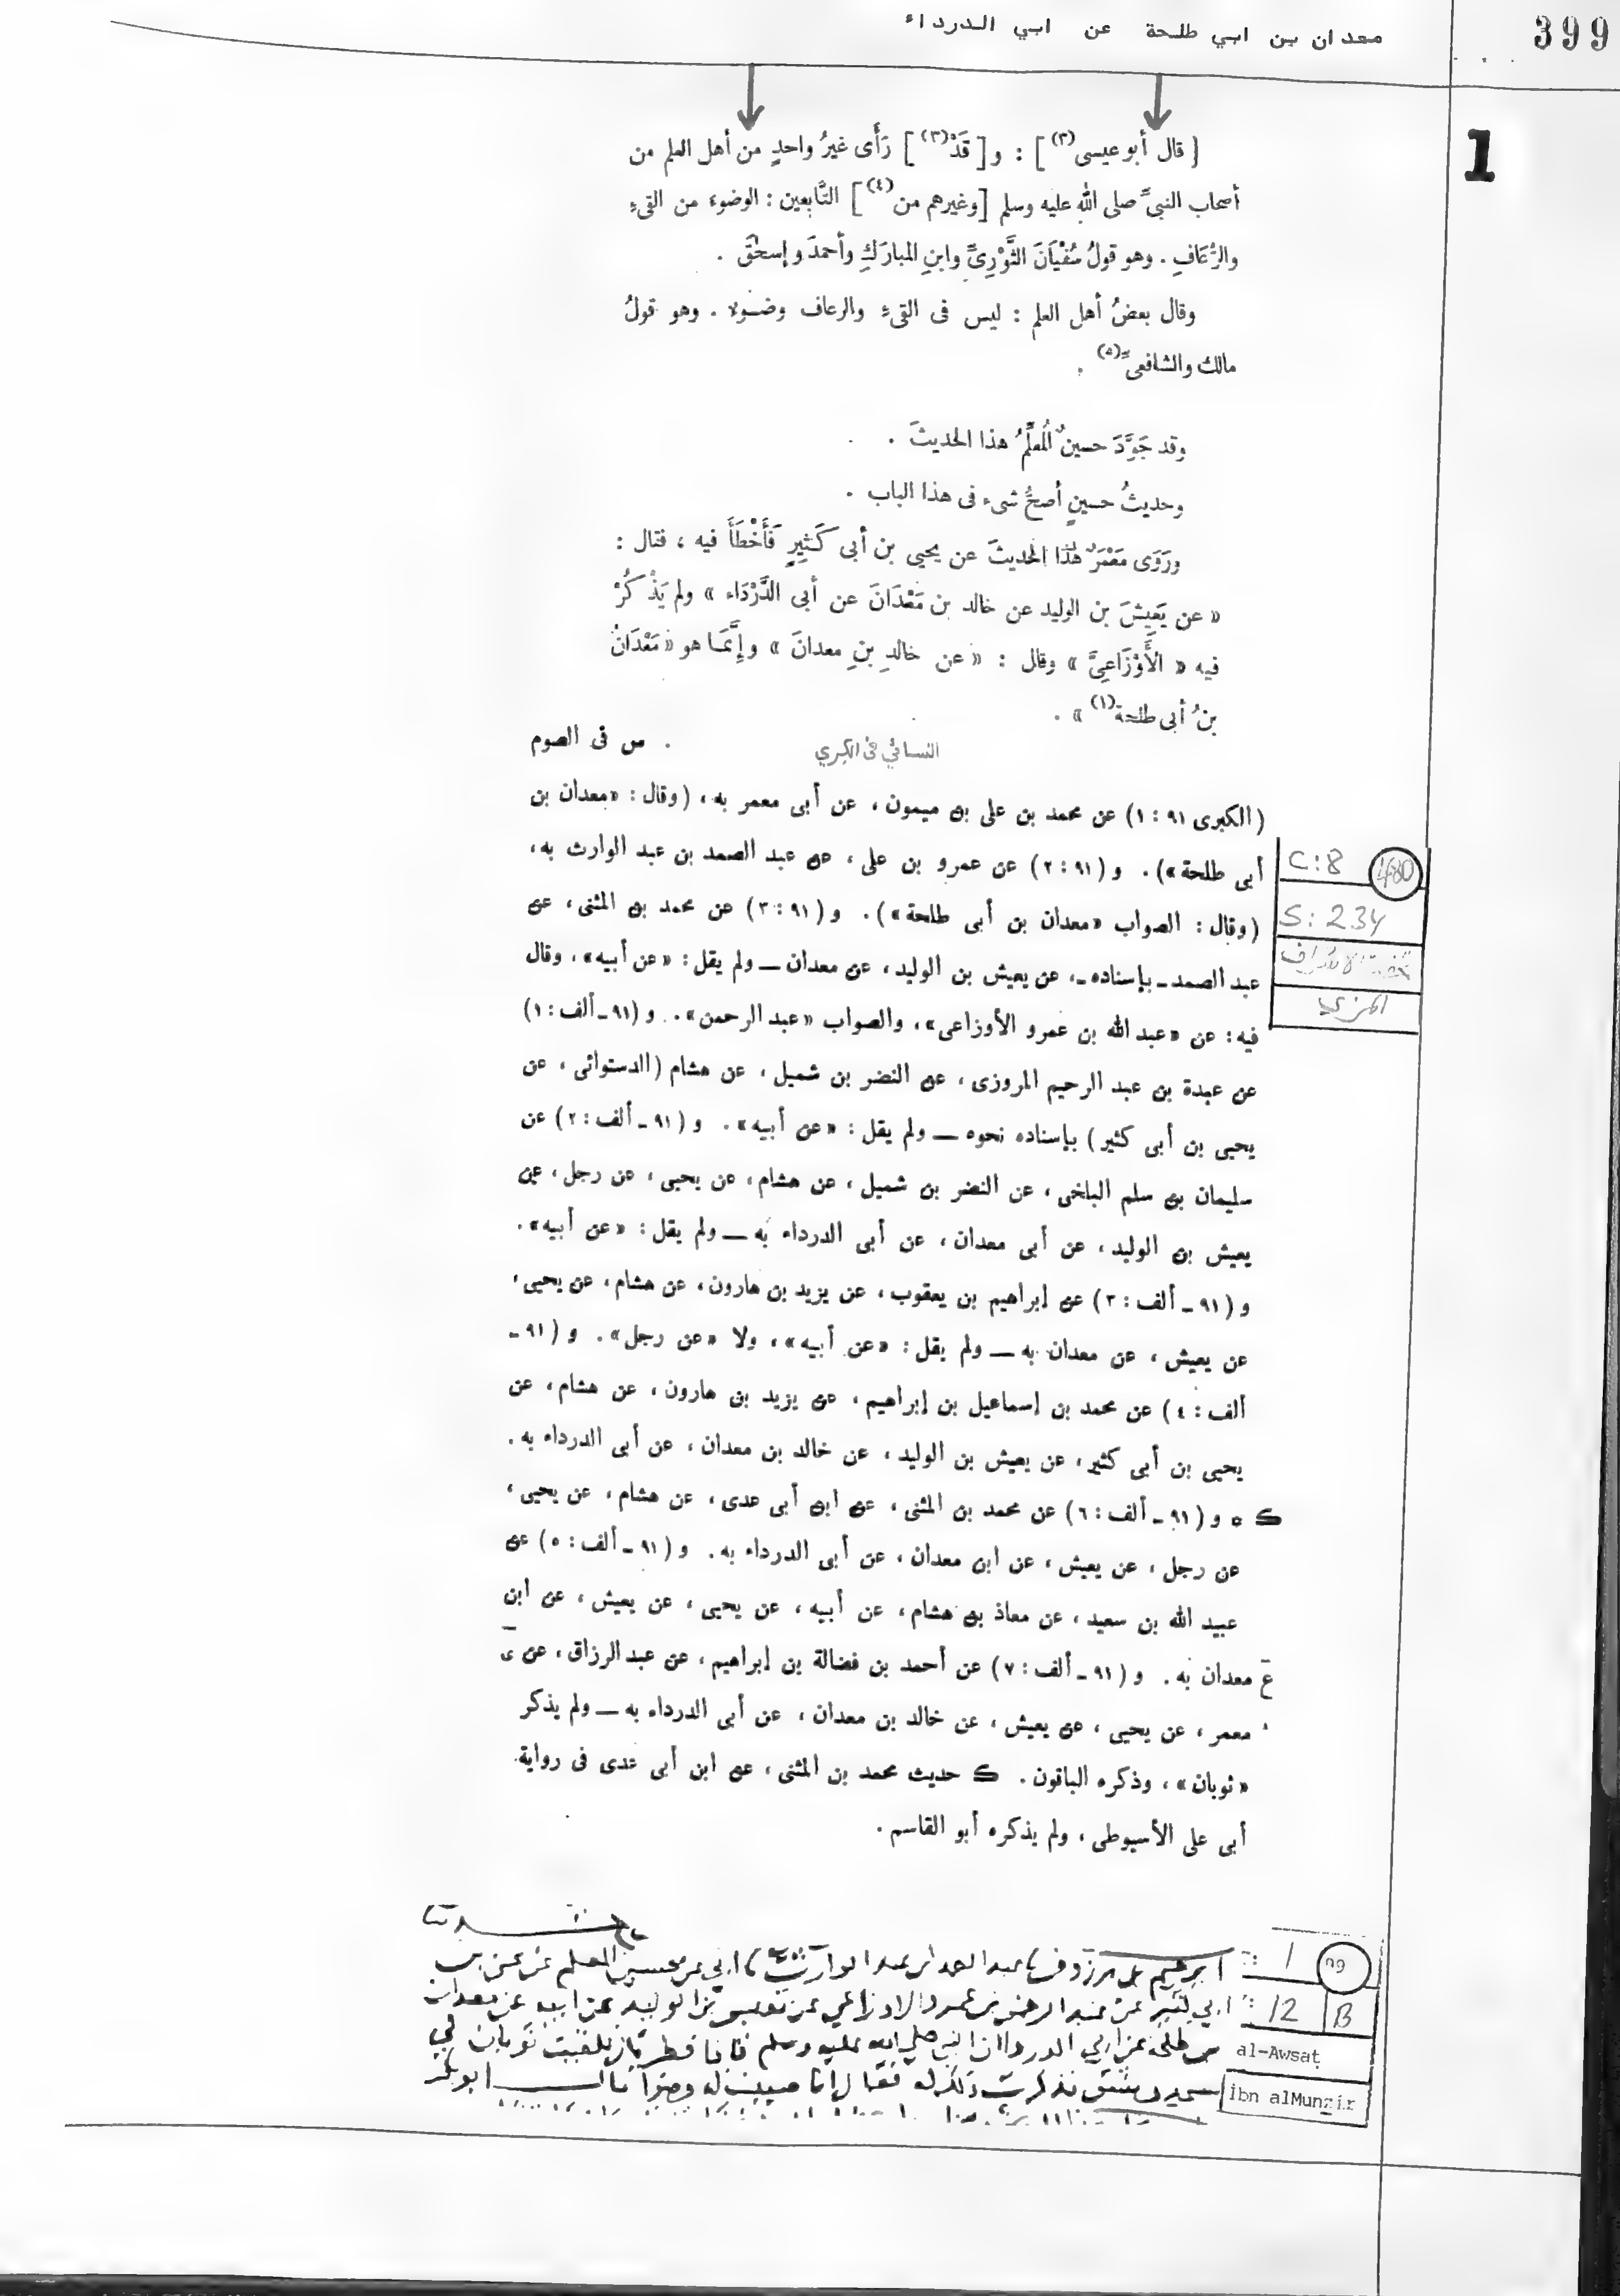 399
معدان بن ابي طلحة عن ابي الدرداء
1
[قال أبو عيسى(٣)] : و[قَدْ(٣)] رَأَى غيرُ واحدٍ من أهل العلم من
أصحاب النبىِّ صلى الله عليه وسلم [وغيرهم من(٤)] التَّابعين : الوضوءَ من القىءِ
والرُّعَافِ . وهو قولُ سُفْيَانَ الثَّوْرِىِّ وابنِ المبارَكِ وأحمدَ وإسحٰقَ .
وقال بعضُ أهل العلم : ليس فى القىءِ والرعاف وضوء . وهو قولُ
مالك والشافعىِّ(٥) .
وقد جَوَّدَ حسينٌ المُعَلِّمُ هذا الحديثَ .
وحديثُ حسينٍ أصحُّ شىء فى هذا الباب .
ورَوَى مَعْمَرٌ هذا الحديثَ عن يحيى بن أبى كَثِيرٍ فَأَخْطَأَ فيه ، فقال :
« عن يَعِيشَ بن الوليد عن خالد بن مَعْدَانَ عن أبى الدَّرْدَاء » ولم يَذْكُرْ
فيه « الأَوْزَاعِىَّ » وقال : « عن خالدِ بنِ معدانَ » وإِنَّمَا هو « مَعْدَانُ
بنُ أبى طلحة(١) » .
النسائي في الكبري
س فى الصوم
(الكبرى ٩١ : ١) عن محمد بن على بن ميمون ، عن أبى معمر به ، (وقال : «معدان بن
أبى طلحة») . و (٩١ : ٢) عن عمرو بن على ، عن عبد الصمد بن عبد الوارث به ،
(وقال : الصواب «معدان بن أبى طلحة») . و (٩١ : ٣) عن محمد بن المثنى ، عن
عبد الصمد ـ بإسناده ـ ، عن يعيش بن الوليد ، عن معدان ـــ ولم يقل : «عن أبيه» ، وقال
فيه : عن «عبد الله بن عمرو الأوزاعى» ، والصواب «عبد الرحمن» . و (٩١ ـ ألف : ١)
عن عبدة بن عبد الرحيم المروزى ، عن النضر بن شميل ، عن هشام (الدستوائى ، عن
يحيى بن أبى كثير) بإسناده نحوه ـــ ولم يقل : «عن أبيه» . و (٩١ ـ ألف : ٢) عن
سليمان بن سلم البلخى ، عن النضر بن شميل ، عن هشام ، عن يحيى ، عن رجل ، عن
يعيش بن الوليد ، عن أبى معدان ، عن أبى الدرداء به ـــ ولم يقل : «عن أبيه» .
و (٩١ ـ ألف : ٣) عن إبراهيم بن يعقوب ، عن يزيد بن هارون ، عن هشام ، عن يحيى ،
عن يعيش ، عن معدان به ـــ ولم يقل : «عن أبيه» ، ولا «عن رجل» . و (٩١ ـ
ألف : ٤) عن محمد بن إسماعيل بن إبراهيم ، عن يزيد بن هارون ، عن هشام ، عن
يحيى بن أبى كثير ، عن يعيش بن الوليد ، عن خالد بن معدان ، عن أبى الدرداء به .
ك ه و (٩١ ـ ألف : ٦) عن محمد بن المثنى ، عن ابن أبى عدى ، عن هشام ، عن يحيى ،
عن رجل ، عن يعيش ، عن ابن معدان ، عن أبى الدرداء به . و (٩١ ـ ألف : ٥) عن
عبيد الله بن سعيد ، عن معاذ بن هشام ، عن أبيه ، عن يحيى ، عن يعيش ، عن ابن
معدان به . و (٩١ ـ ألف : ٧) عن أحمد بن فضالة بن إبراهيم ، عن عبد الرزاق ، عن
معمر ، عن يحيى ، عن يعيش ، عن خالد بن معدان ، عن أبى الدرداء به ـــ ولم يذكر
«ثوبان» ، وذكره الباقون . ك حديث محمد بن المثنى ، عن ابن أبى عدى فى رواية
أبى على الأسيوطى ، ولم يذكره أبو القاسم .
C:8 480
S:234
تحفة الاشراف
المزي
ابرهيم بن مرزوق عبد الصمد بن عبد الوارث ابي عن حسين المعلم عن يحيى بن
ابي كثير عن عبد الرحمن بن عمرو الاوزاعي عن يعيش بن الوليد عن ابيه عن معدان
بن طلحة عن ابي الدردا ان النبي صلى الله عليه وسلم قا فافطر قال فلقيت ثوبان في
مسجد دمشق فذكرت ذلك له فقال انا صببت له وضوا قال ابو بكر
: 1 99
: 12 B
al-Awsaṭ
İbn alMunẕir